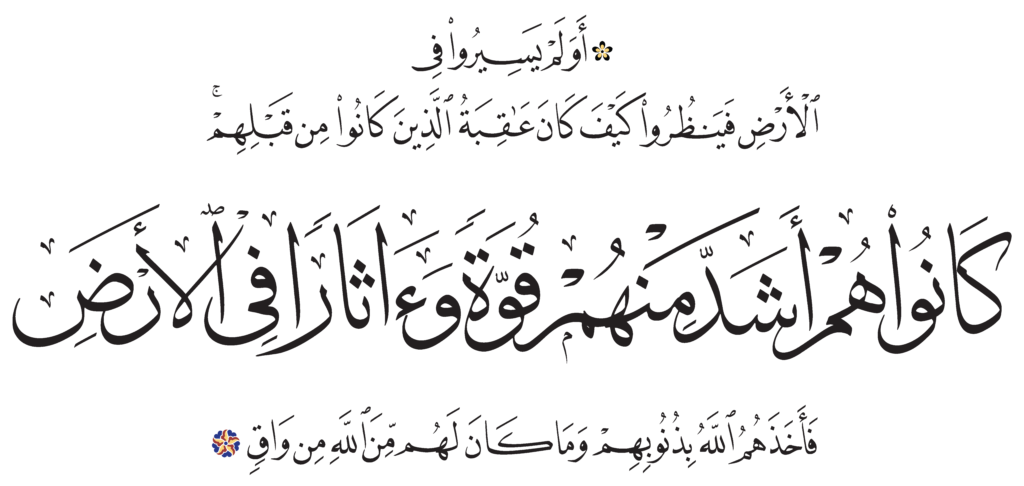 أَوَلَمْ يَسِيرُوا۟ فِى
ٱلْأَرْضِ فَيَنظُرُوا۟ كَيْفَ كَانَ عَـٰقِبَةُ ٱلَّذِينَ كَانُوا۟ مِن قَبْلِهِمْ ۚ
كَانُوا۟ هُمْ أَشَدَّ مِنْهُمْ قُوَّةً وَءَاثَارًا فِى ٱلْأَرْضِ
فَأَخَذَهُمُ ٱللَّهُ بِذُنُوبِهِمْ وَمَا كَانَ لَهُم مِّنَ ٱللَّهِ مِن وَاقٍ